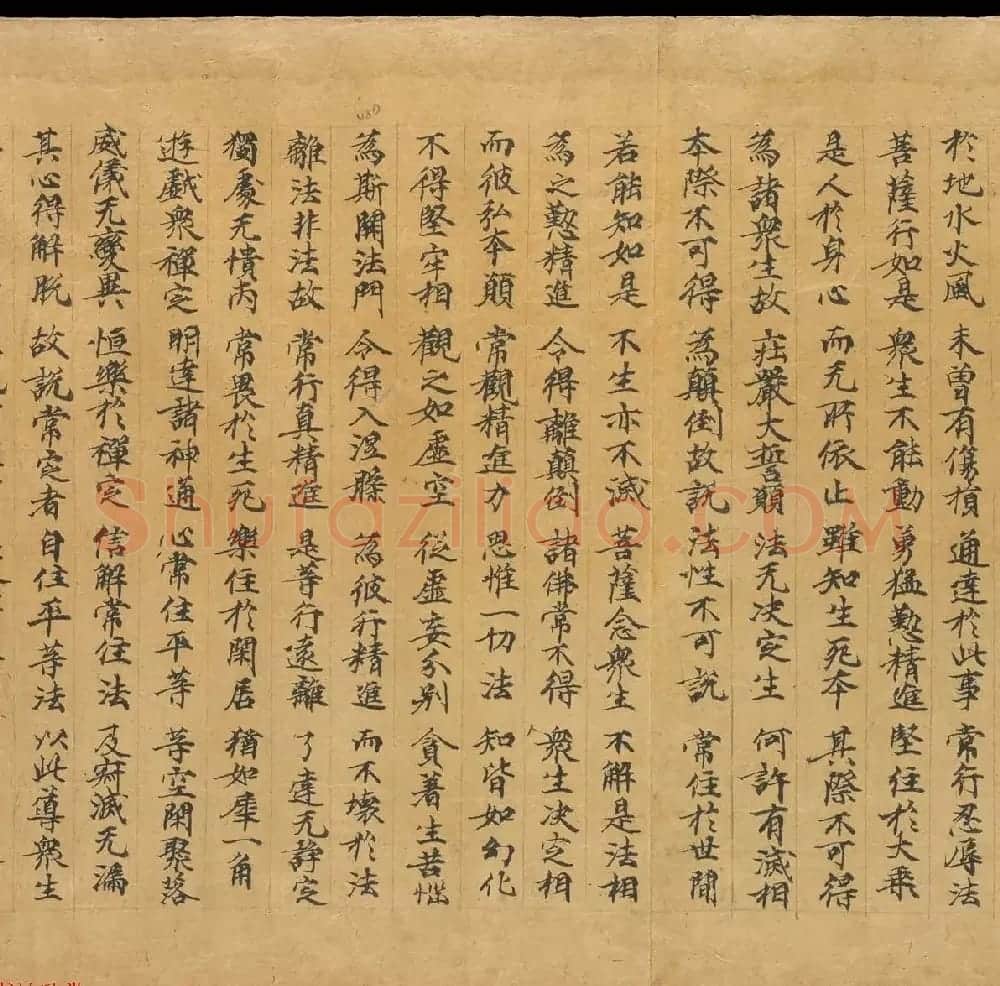 於地水火風 未曾有傷損 通達於此事 常行忍辱法
菩薩行如是 衆生不能動 勇猛懃精進 堅住於大乘
是人於身心 而无所依止 雖知生死本 其際不可得
為諸衆生故 莊嚴大誓願 法无决定生 何許有滅相
本際不可得 為顛倒故說 法性不可說 常住於世間
若能知如是 不生亦不滅 菩薩念衆生 不解是法相
為之懃精進 令得離顛倒 諸佛常不得 衆生决定相
而彼弘本願 常觀精進力 思惟一切法 知皆如幻化
不得堅牢相 觀之如虛空 從虛妄分別 貪著生苦惱
為斯開法門 令得入涅槃 為彼行精進 而不壞於法
離法非法故 常行真精進 是等行遠離 了達无諍定
獨處无憒丙 常畏於生死 樂住於閑居 猶如犀一角
遊戲衆禪定 明達諸神通 心常住平等 等空閑聚落
威儀无變異 恒樂於禪定 信解常住法 及寂滅无漏
其心得解脫 故說常定者 自住平等法 以此導衆生
Shufazilidao.COM